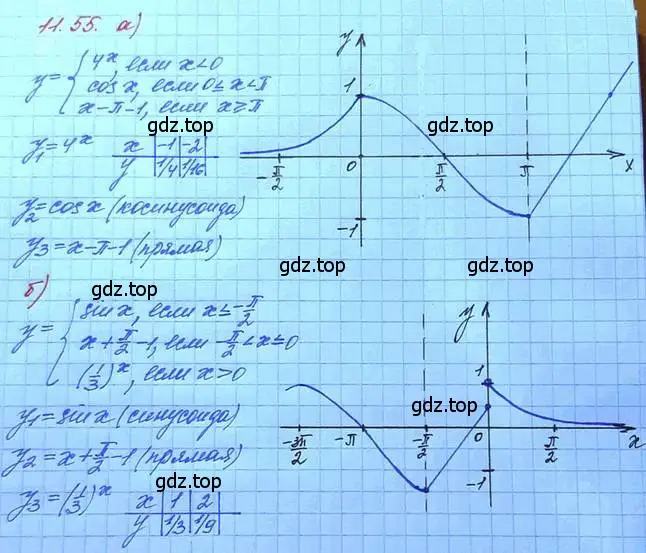 11.55. а)
y = { 4ˣ, если x<0
cos x, если 0≤x<π
x-π-1, если x≥π
y₁=4ˣ x | -1 | -2 |
y | 1/4 | 1/16 |
y₂=cos x (косинусоида)
y₃=x-π-1 (прямая)
y
1
-π/2 0 π/2 π x
-1
gdz.top gdz.top
gdz.top gdz.top
gdz.top gdz.top
б)
y = { sin x, если x≤-π/2
x+π/2-1, если -π/2<x≤0
(1/3)ˣ, если x>0
y₁=sin x (синусоида)
y₂=x+π/2-1 (прямая)
y₃=(1/3)ˣ x | 1 | 2 |
y | 1/3 | 1/9 |
y
1
-3π/2 -π -π/2 0 π/2 x
-1
gdz.top gdz.top
gdz.top gdz.top
gdz.top gdz.top